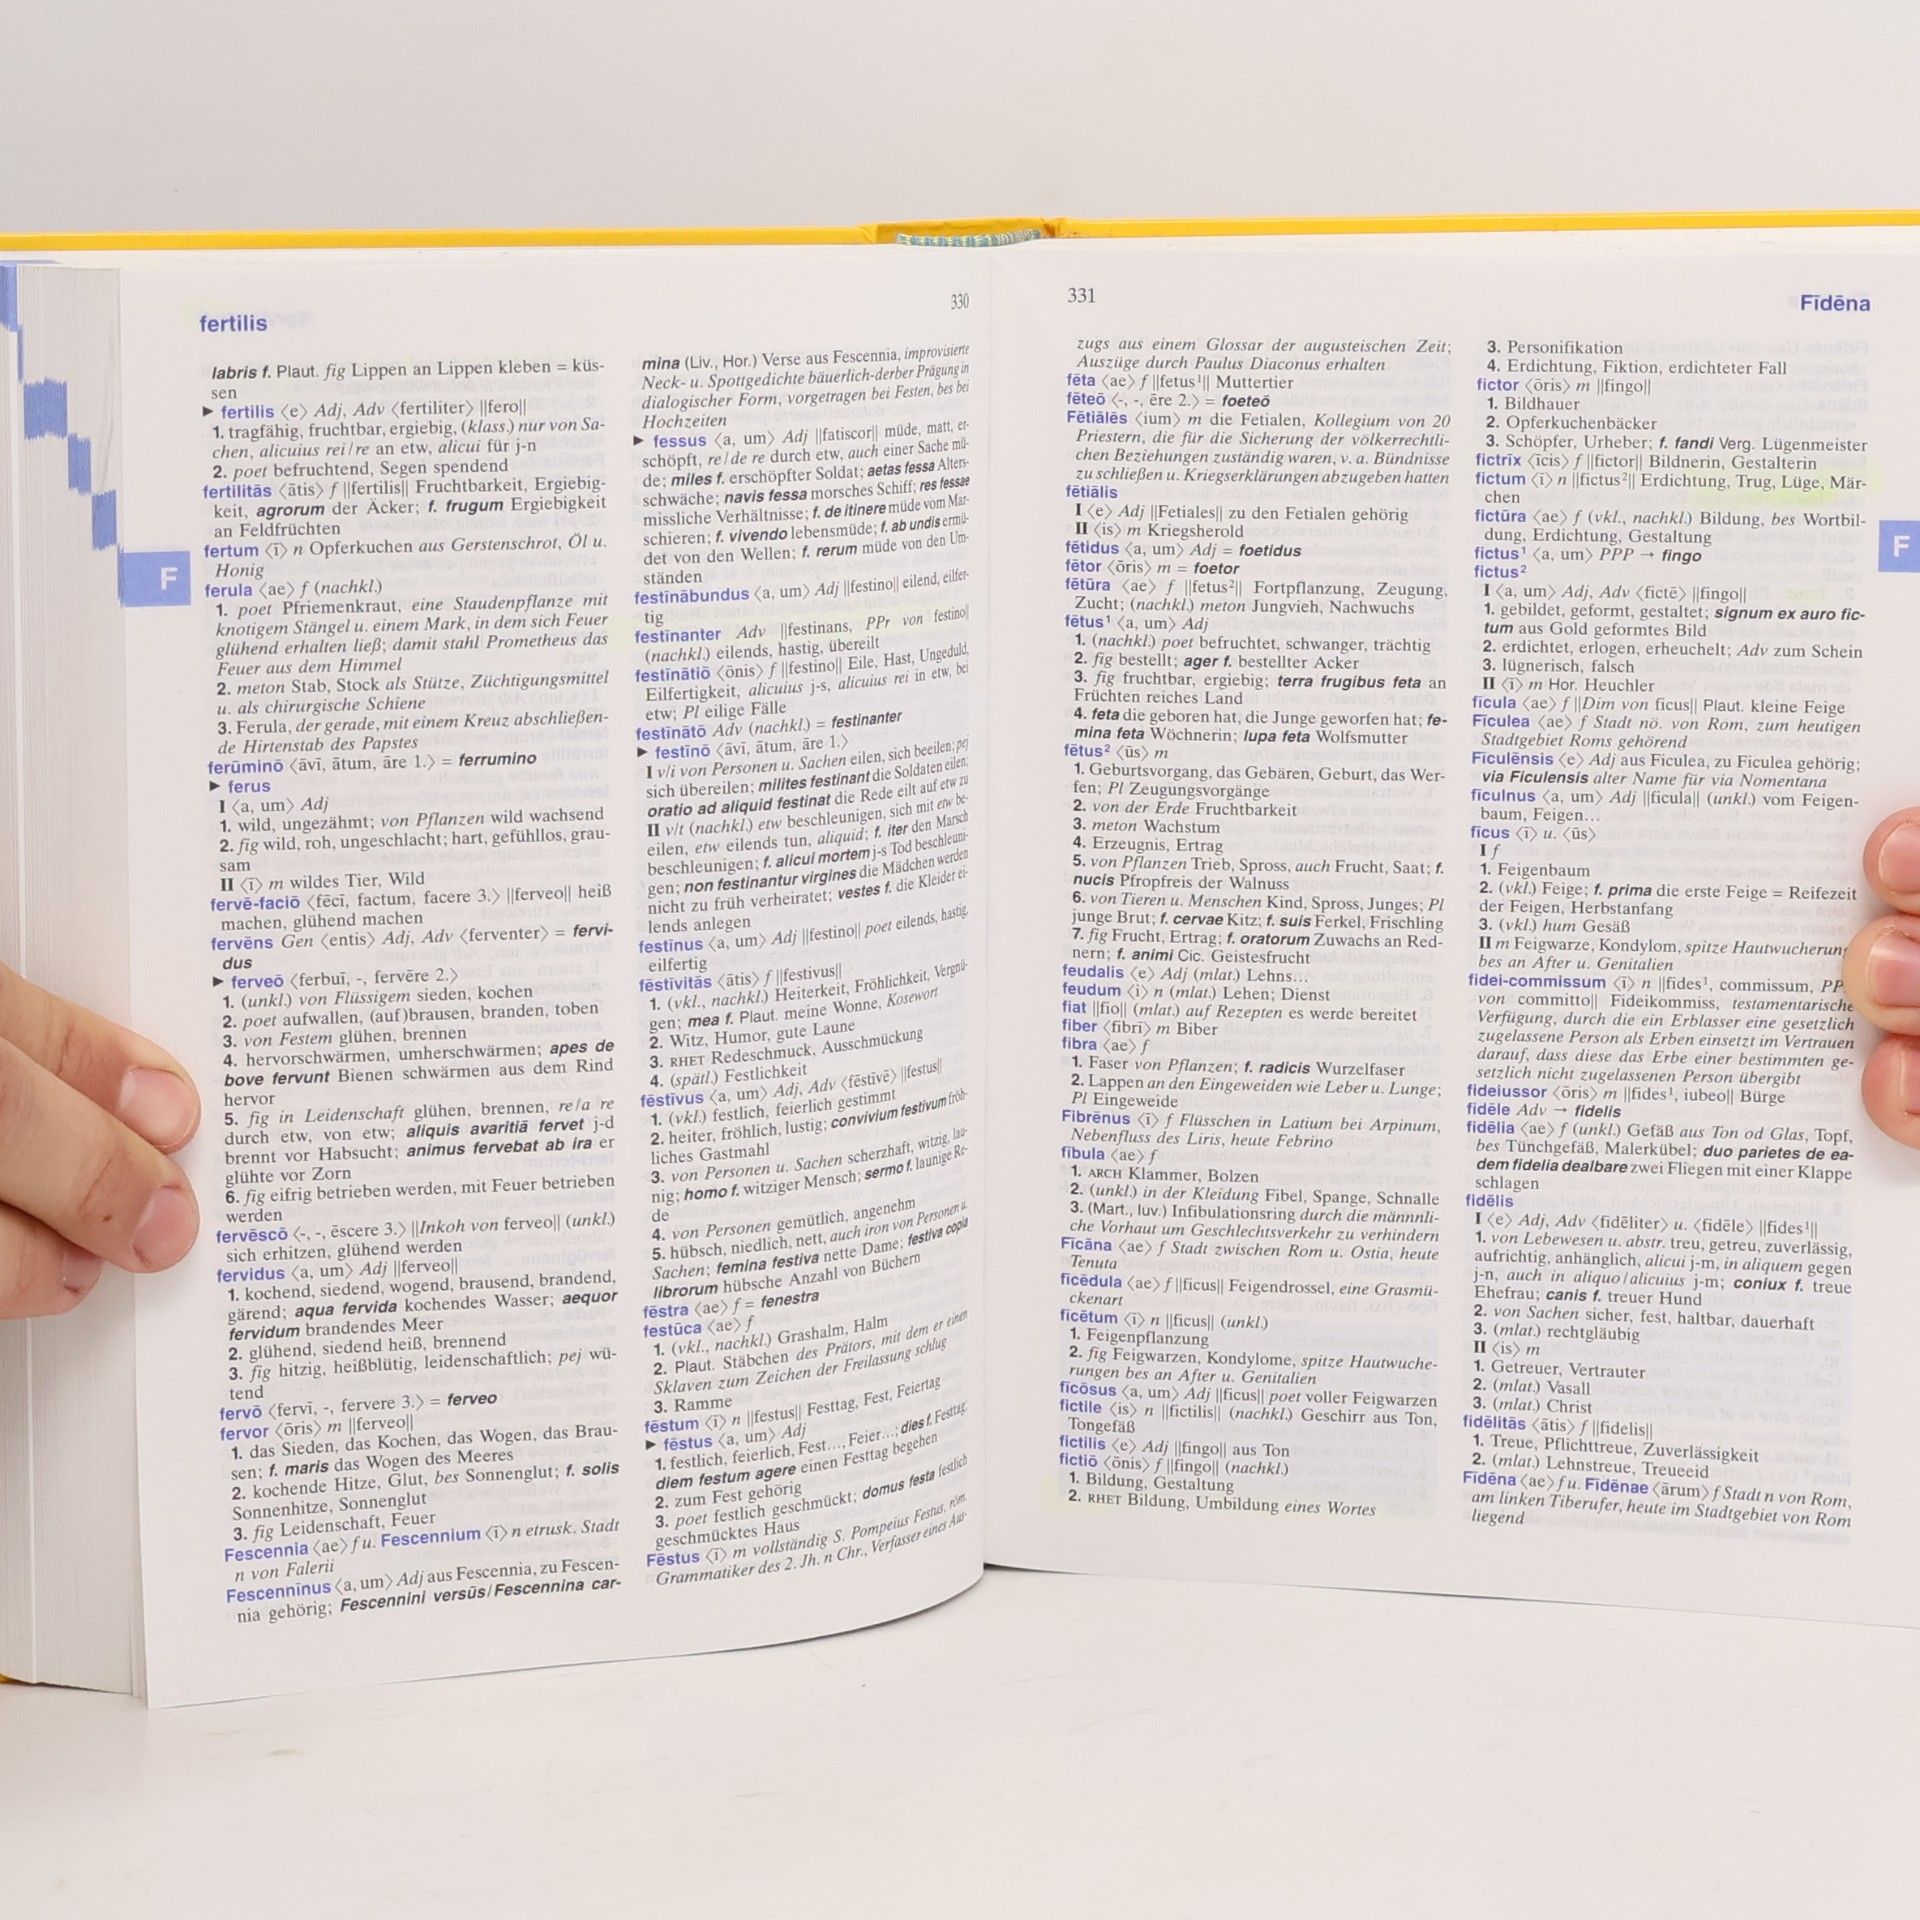 fertilis
330
labris f. Plaut. fig Lippen an Lippen kleben = küs-
sen
► fertilis ⟨e⟩ Adj, Adv ⟨fertiliter⟩ ||fero||
1. tragfähig, fruchtbar, ergiebig, (klass.) nur von Sa-
chen, alicuius rei/re an etw, alicui für j-n
2. poet befruchtend, Segen spendend
fertilitās ⟨ātis⟩ f ||fertilis|| Fruchtbarkeit, Ergiebig-
keit, agrorum der Äcker; f. frugum Ergiebigkeit
an Feldfrüchten
fertum ⟨ī⟩ n Opferkuchen aus Gerstenschrot, Öl u.
Honig
F
ferula ⟨ae⟩ f (nachkl.)
1. poet Pfriemenkraut, eine Staudenpflanze mit
knotigem Stängel u. einem Mark, in dem sich Feuer
glühend erhalten ließ; damit stahl Prometheus das
Feuer aus dem Himmel
2. meton Stab, Stock als Stütze, Züchtigungsmittel
u. als chirurgische Schiene
3. Ferula, der gerade, mit einem Kreuz abschließen-
de Hirtenstab des Papstes
ferūminō ⟨āvī, ātum, āre 1.⟩ = ferrumino
► ferus
I ⟨a, um⟩ Adj
1. wild, ungezähmt; von Pflanzen wild wachsend
2. fig wild, roh, ungeschlacht; hart, gefühllos, grau-
sam
II ⟨ī⟩ m wildes Tier, Wild
fervē-faciō ⟨fēcī, factum, facere 3.⟩ ||ferveo|| heiß
machen, glühend machen
fervēns Gen ⟨entis⟩ Adj, Adv ⟨ferventer⟩ = fervi-
dus
► ferveō ⟨ferbuī, -, fervēre 2.⟩
1. (unkl.) von Flüssigem sieden, kochen
2. poet aufwallen, (auf)brausen, branden, toben
3. von Festem glühen, brennen
4. hervorschwärmen, umherschwärmen; apes de
bove fervunt Bienen schwärmen aus dem Rind
hervor
5. fig in Leidenschaft glühen, brennen, re/a re
durch etw, von etw; aliquis avaritiā fervet j-d
brennt vor Habsucht; animus fervebat ab ira er
glühte vor Zorn
6. fig eifrig betrieben werden, mit Feuer betrieben
werden
fervēscō ⟨-, -, ēscere 3.⟩ ||Inkoh von ferveo|| (unkl.)
sich erhitzen, glühend werden
fervidus ⟨a, um⟩ Adj ||ferveo||
1. kochend, siedend, wogend, brausend, brandend,
gärend; aqua fervida kochendes Wasser; aequor
fervidum brandendes Meer
2. glühend, siedend heiß, brennend
3. fig hitzig, heißblütig, leidenschaftlich; pej wü-
tend
fervō ⟨fervī, -, fervere 3.⟩ = ferveo
fervor ⟨ōris⟩ m ||ferveo||
1. das Sieden, das Kochen, das Wogen, das Brau-
sen; f. maris das Wogen des Meeres
2. kochende Hitze, Glut, bes Sonnenglut; f. solis
Sonnenhitze, Sonnenglut
3. fig Leidenschaft, Feuer
Fescennia ⟨ae⟩ f u. Fescennium ⟨ī⟩ n etrusk. Stadt
n von Falerii
Fescennīnus ⟨a, um⟩ Adj aus Fescennia, zu Fescen-
nia gehörig; Fescennini versūs/Fescennina car-
mina (Liv., Hor.) Verse aus Fescennia, improvisierte
Neck- u. Spottgedichte bäuerlich-derber Prägung in
dialogischer Form, vorgetragen bei Festen, bes bei
Hochzeiten
► fessus ⟨a, um⟩ Adj ||fatiscor|| müde, matt, er-
schöpft, re/de re durch etw, auch einer Sache mü-
de; miles f. erschöpfter Soldat; aetas fessa Alters-
schwäche; navis fessa morsches Schiff; res fessae
missliche Verhältnisse; f. de itinere müde vom Mar-
schieren; f. vivendo lebensmüde; f. ab undis ermü-
det von den Wellen; f. rerum müde von den Um-
ständen
festīnābundus ⟨a, um⟩ Adj ||festino|| eilend, eilfer-
tig
festīnanter Adv ||festinans, PPr von festino||
(nachkl.) eilends, hastig, übereilt
festīnātiō ⟨ōnis⟩ f ||festino|| Eile, Hast, Ungeduld,
Eilfertigkeit, alicuius j-s, alicuius rei in etw, bei
etw; Pl eilige Fälle
festīnātō Adv (nachkl.) = festinanter
► festīnō ⟨āvī, ātum, āre 1.⟩
I v/i von Personen u. Sachen eilen, sich beeilen; pej
sich übereilen; milites festinant die Soldaten eilen;
oratio ad aliquid festinat die Rede eilt auf etw zu
II v/t (nachkl.) etw beschleunigen, sich mit etw be-
eilen, etw eilends tun, aliquid; f. iter den Marsch
beschleunigen; f. alicui mortem j-s Tod beschleuni-
gen; non festinantur virgines die Mädchen werden
nicht zu früh verheiratet; vestes f. die Kleider ei-
lends anlegen
festīnus ⟨a, um⟩ Adj ||festino|| poet eilends, hastig,
eilfertig
fēstīvitās ⟨ātis⟩ f ||festivus||
1. (vkl., nachkl.) Heiterkeit, Fröhlichkeit, Vergnü-
gen; mea f. Plaut. meine Wonne, Kosewort
2. Witz, Humor, gute Laune
3. RHET Redeschmuck, Ausschmückung
4. (spätl.) Festlichkeit
fēstīvus ⟨a, um⟩ Adj, Adv ⟨fēstīvē⟩ ||festus||
1. (vkl.) festlich, feierlich gestimmt
2. heiter, fröhlich, lustig; convivium festivum fröh-
liches Gastmahl
3. von Personen u. Sachen scherzhaft, witzig, lau-
nig; homo f. witziger Mensch; sermo f. launige Re-
de
4. von Personen gemütlich, angenehm
5. hübsch, niedlich, nett, auch iron von Personen u.
Sachen; femina festiva nette Dame; festiva copia
librorum hübsche Anzahl von Büchern
fēstra ⟨ae⟩ f = fenestra
festūca ⟨ae⟩ f
1. (vkl., nachkl.) Grashalm, Halm
2. Plaut. Stäbchen des Prätors, mit dem er einen
Sklaven zum Zeichen der Freilassung schlug
3. Ramme
fēstum ⟨ī⟩ n ||festus|| Festtag, Fest, Feiertag
► fēstus ⟨a, um⟩ Adj
1. festlich, feierlich, Fest…, Feier…; dies f. Festtag;
diem festum agere einen Festtag begehen
2. zum Fest gehörig
3. poet festlich geschmückt; domus festa festlich
geschmücktes Haus
Fēstus ⟨ī⟩ m vollständig S. Pompeius Festus, röm.
Grammatiker des 2. Jh. n Chr., Verfasser eines Aus-
331
Fīdēna
zugs aus einem Glossar der augusteischen Zeit;
Auszüge durch Paulus Diaconus erhalten
fēta ⟨ae⟩ f ||fetus¹|| Muttertier
fēteō ⟨-, -, ēre 2.⟩ = foeteō
Fētiālēs ⟨ium⟩ m die Fetialen, Kollegium von 20
Priestern, die für die Sicherung der völkerrechtli-
chen Beziehungen zuständig waren, v. a. Bündnisse
zu schließen u. Kriegserklärungen abzugeben hatten
fētiālis
I ⟨e⟩ Adj ||Fetiales|| zu den Fetialen gehörig
II ⟨is⟩ m Kriegsherold
fētidus ⟨a, um⟩ Adj = foetidus
fētor ⟨ōris⟩ m = foetor
fētūra ⟨ae⟩ f ||fetus²|| Fortpflanzung, Zeugung,
Zucht; (nachkl.) meton Jungvieh, Nachwuchs
fētus¹ ⟨a, um⟩ Adj
1. (nachkl.) poet befruchtet, schwanger, trächtig
2. fig bestellt; ager f. bestellter Acker
3. fig fruchtbar, ergiebig; terra frugibus feta an
Früchten reiches Land
4. feta die geboren hat, die Junge geworfen hat; fe-
mina feta Wöchnerin; lupa feta Wolfsmutter
fētus² ⟨ūs⟩ m
1. Geburtsvorgang, das Gebären, Geburt, das Wer-
fen; Pl Zeugungsvorgänge
2. von der Erde Fruchtbarkeit
3. meton Wachstum
4. Erzeugnis, Ertrag
5. von Pflanzen Trieb, Spross, auch Frucht, Saat; f.
nucis Pfropfreis der Walnuss
6. von Tieren u. Menschen Kind, Spross, Junges; Pl
junge Brut; f. cervae Kitz; f. suis Ferkel, Frischling
7. fig Frucht, Ertrag; f. oratorum Zuwachs an Red-
nern; f. animi Cic. Geistesfrucht
feudalis ⟨e⟩ Adj (mlat.) Lehns…
feudum ⟨ī⟩ n (mlat.) Lehen; Dienst
fiat ||fio|| (mlat.) auf Rezepten es werde bereitet
fiber ⟨fibrī⟩ m Biber
fibra ⟨ae⟩ f
1. Faser von Pflanzen; f. radicis Wurzelfaser
2. Lappen an den Eingeweiden wie Leber u. Lunge;
Pl Eingeweide
Fibrēnus ⟨ī⟩ f Flüsschen in Latium bei Arpinum,
Nebenfluss des Liris, heute Febrino
fībula ⟨ae⟩ f
1. ARCH Klammer, Bolzen
2. (unkl.) in der Kleidung Fibel, Spange, Schnalle
3. (Mart., Iuv.) Infibulationsring durch die männnli-
che Vorhaut um Geschlechtsverkehr zu verhindern
Fīcāna ⟨ae⟩ f Stadt zwischen Rom u. Ostia, heute
Tenuta
fīcēdula ⟨ae⟩ f ||ficus|| Feigendrossel, eine Grasmü-
ckenart
fīcētum ⟨ī⟩ n ||ficus|| (unkl.)
1. Feigenpflanzung
2. fig Feigwarzen, Kondylome, spitze Hautwuche-
rungen bes an After u. Genitalien
fīcōsus ⟨a, um⟩ Adj ||ficus|| poet voller Feigwarzen
fictile ⟨is⟩ n ||fictilis|| (nachkl.) Geschirr aus Ton,
Tongefäß
fictilis ⟨e⟩ Adj ||fingo|| aus Ton
fictiō ⟨ōnis⟩ f ||fingo|| (nachkl.)
1. Bildung, Gestaltung
2. RHET Bildung, Umbildung eines Wortes
3. Personifikation
4. Erdichtung, Fiktion, erdichteter Fall
fictor ⟨ōris⟩ m ||fingo||
1. Bildhauer
2. Opferkuchenbäcker
3. Schöpfer, Urheber; f. fandi Verg. Lügenmeister
fictrīx ⟨īcis⟩ f ||fictor|| Bildnerin, Gestalterin
fictum ⟨ī⟩ n ||fictus²|| Erdichtung, Trug, Lüge, Mär-
chen
fictūra ⟨ae⟩ f (vkl., nachkl.) Bildung, bes Wortbil-
dung, Erdichtung, Gestaltung
F
fictus¹ ⟨a, um⟩ PPP → fingo
fictus²
I ⟨a, um⟩ Adj, Adv ⟨fictē⟩ ||fingo||
1. gebildet, geformt, gestaltet; signum ex auro fic-
tum aus Gold geformtes Bild
2. erdichtet, erlogen, erheuchelt; Adv zum Schein
3. lügnerisch, falsch
II ⟨ī⟩ m Hor. Heuchler
fīcula ⟨ae⟩ f ||Dim von ficus|| Plaut. kleine Feige
Fīculea ⟨ae⟩ f Stadt nö. von Rom, zum heutigen
Stadtgebiet Roms gehörend
Fīculēnsis ⟨e⟩ Adj aus Ficulea, zu Ficulea gehörig;
via Ficulensis alter Name für via Nomentana
fīculnus ⟨a, um⟩ Adj ||ficula|| (unkl.) vom Feigen-
baum, Feigen…
fīcus ⟨ī⟩ u. ⟨ūs⟩
I f
1. Feigenbaum
2. (vkl.) Feige; f. prima die erste Feige = Reifezeit
der Feigen, Herbstanfang
3. (vkl.) hum Gesäß
II m Feigwarze, Kondylom, spitze Hautwucherung
bes an After u. Genitalien
fidei-commissum ⟨ī⟩ n ||fides¹, commissum, PP
von committo|| Fideikommiss, testamentarische
Verfügung, durch die ein Erblasser eine gesetzlich
zugelassene Person als Erben einsetzt im Vertrauen
darauf, dass diese das Erbe einer bestimmten ge-
setzlich nicht zugelassenen Person übergibt
fideiussor ⟨ōris⟩ m ||fides¹, iubeo|| Bürge
fidēle Adv → fidelis
fidēlia ⟨ae⟩ f (unkl.) Gefäß aus Ton od Glas, Topf,
bes Tünchgefäß, Malerkübel; duo parietes de ea-
dem fidelia dealbare zwei Fliegen mit einer Klappe
schlagen
fidēlis
I ⟨e⟩ Adj, Adv ⟨fidēliter⟩ u. ⟨fidēle⟩ ||fides¹||
1. von Lebewesen u. abstr. treu, getreu, zuverlässig,
aufrichtig, anhänglich, alicui j-m, in aliquem gegen
j-n, auch in aliquo/alicuius j-m; coniux f. treue
Ehefrau; canis f. treuer Hund
2. von Sachen sicher, fest, haltbar, dauerhaft
3. (mlat.) rechtgläubig
II ⟨is⟩ m
1. Getreuer, Vertrauter
2. (mlat.) Vasall
3. (mlat.) Christ
fidēlitās ⟨ātis⟩ f ||fidelis||
1. Treue, Pflichttreue, Zuverlässigkeit
2. (mlat.) Lehnstreue, Treueeid
Fīdēna ⟨ae⟩ f u. Fīdēnae ⟨ārum⟩ f Stadt n von Rom,
am linken Tiberufer, heute im Stadtgebiet von Rom
liegend